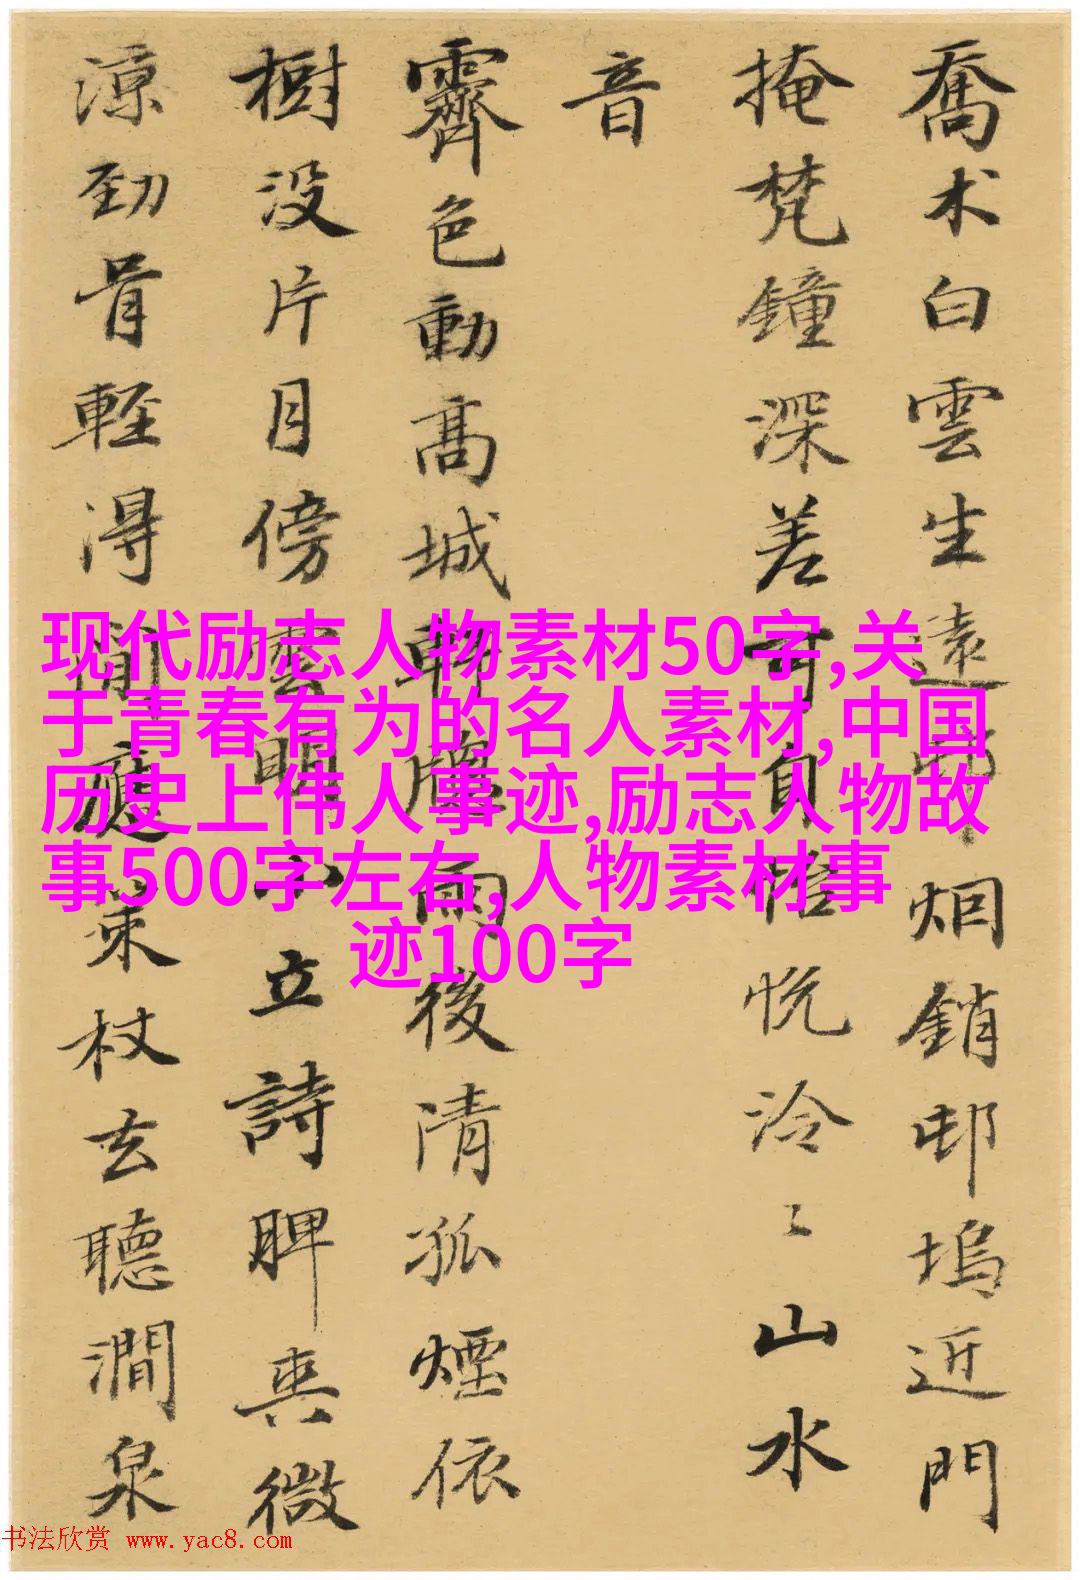 喬木白雲生遠烟銷邨塢近門
掩梵鐘深差可自怡悦泠〻山水
音
霽色動高城軒牕雨後清孤煙依
樹没片月傍雲明小立詩脾爽微
涼劲骨輕得閒應来杖去聽澗泉
现代励志人物素材50字,关
于青春有为的名人素材,中国
历史上伟人事迹,励志人物故
事500字左右,人物素材事
迹100字
书法欣赏 www.yac8.com